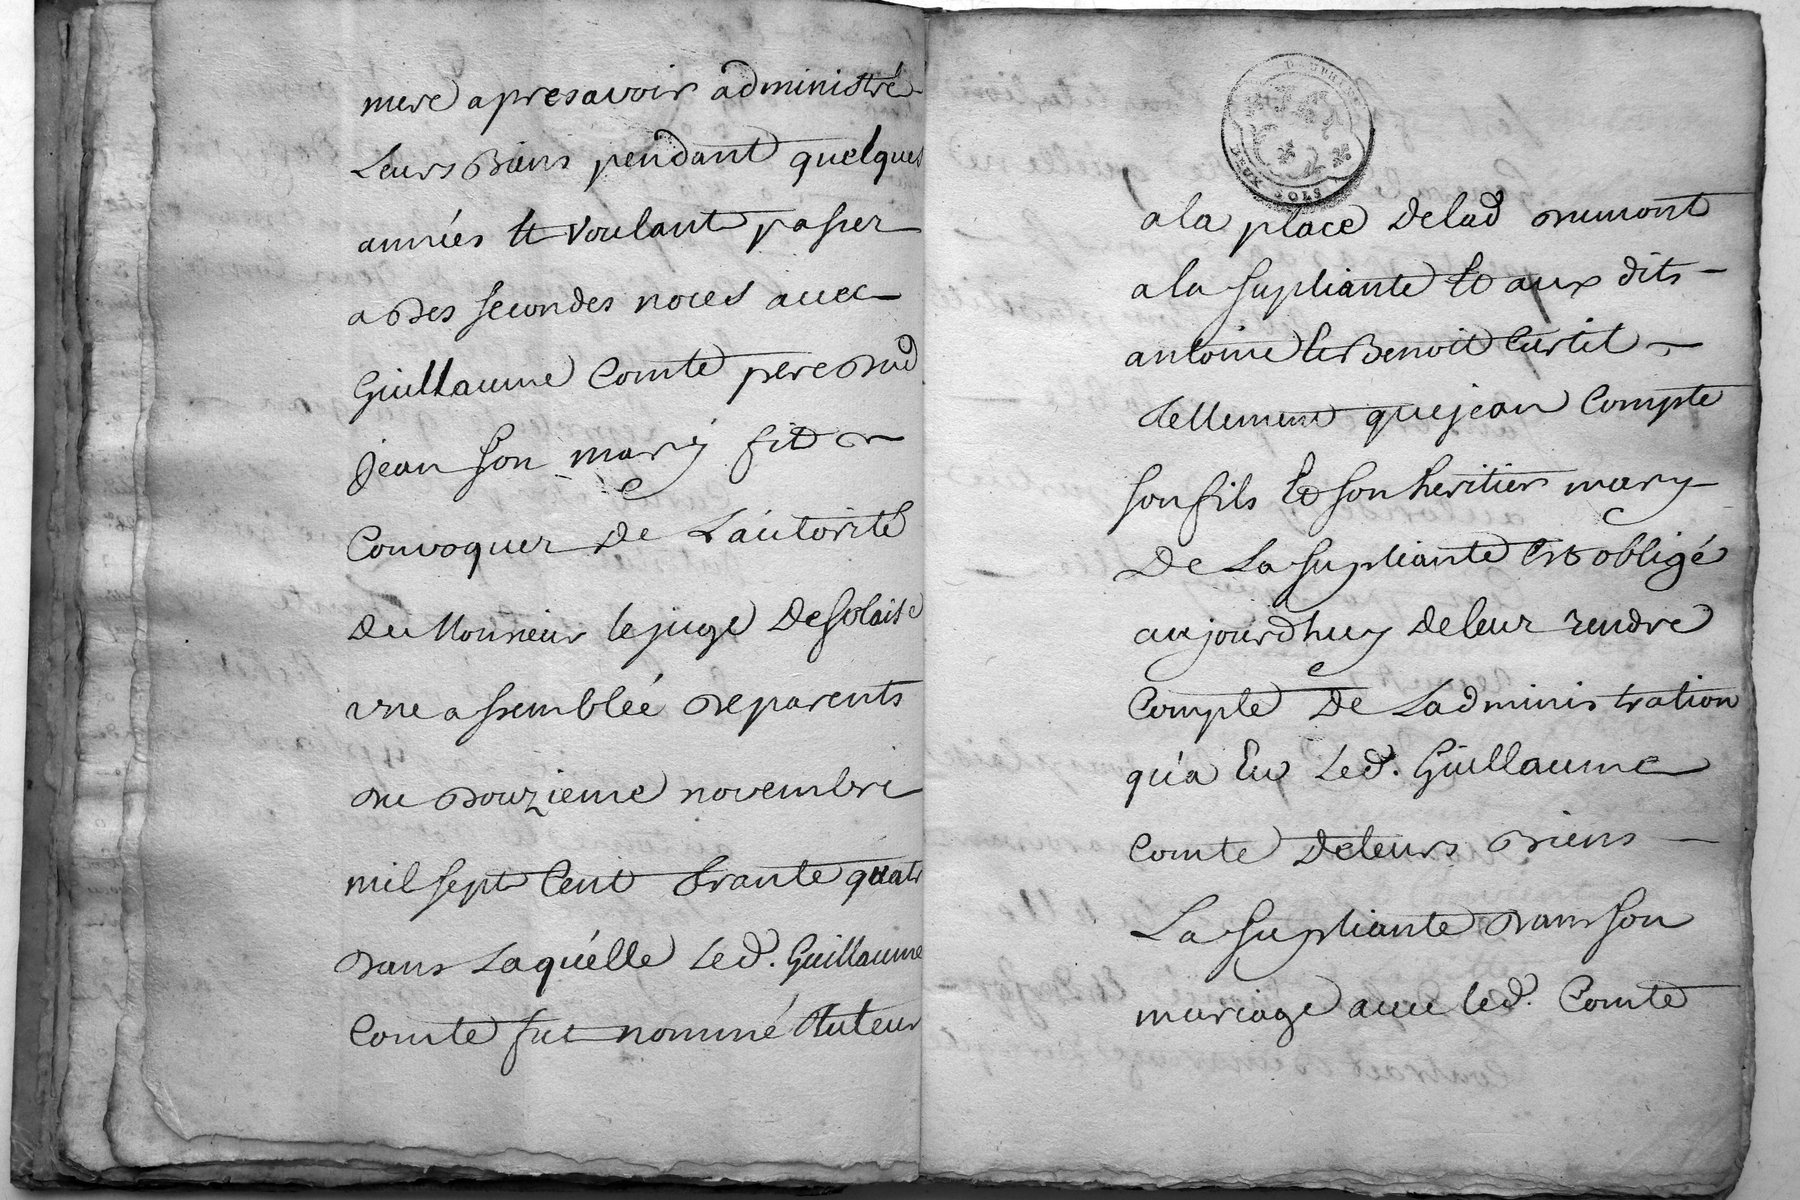 mere apres avoir administré
Leurs Biens pendant quelques
années et voulant passer
a des secondes noces avec
Guillaume Comte pere dud
jean son mary fit
Convoquer de L'autorité
de Monsieur le juge de solaise
une assemblée de parents
du douzieme novembre
mil sept Cent trante quatre
dans Laquélle Led. Guillaume
Comte fut nommé tuteur
DAUPHINE
DEUX SOLS
a la place de lad dumont
a la supliante et aux dits
antoine et Benoit Curtil
tellement que jean Compte
son fils et son heritier mary
De La supliante est obligé
aujourdhuy de leur rendre
Compte de Ladministration
qu'a Eu Led. Guillaume
Comte de leurs Biens
La supliante dans son
mariage avec led. Comte